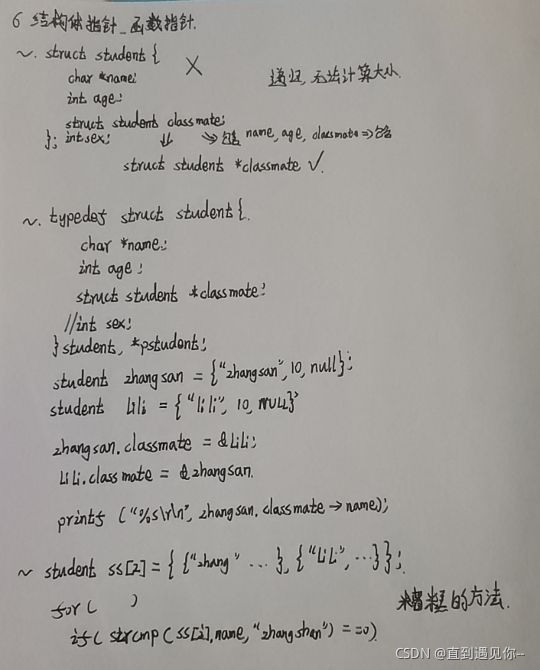 6 结构体指针_函数指针.
~. struct student {
char *name;
int age;
递归, 无法计算大小.
struct student classmate;
}; int sex;
包含 name, age, classmate => 包含
struct student *classmate ✓.
~. typedef struct student {
char *name;
int age;
struct student *classmate;
//int sex;
} student, *pstudent;
student zhangsan = {"zhangsan", 10, null};
student lili = {"lili", 10, NULL}
zhangsan.classmate = &LiLi;
LiLi.classmate = &zhangsan.
printf ("%s\r\n", zhangsan.classmate -> name);
~ student ss[2] = { {"zhang" ... }, {"LiLi", ...} };
for ( )
糟糕的方法.
if( strcmp ( ss[i].name, "zhangshan") == 0)
CSDN @直到遇见你--